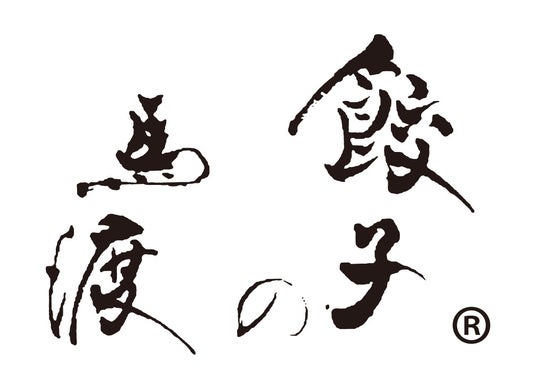 餃子の
馬渡
®